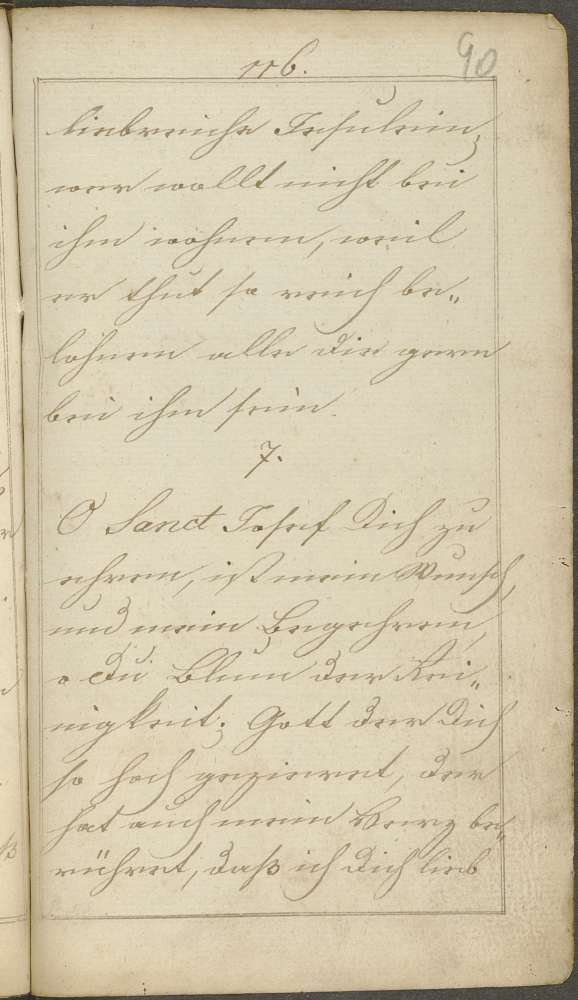 116.
90
liebreiche Jesulein,
wer wollt nicht bei
ihm wohnen, weil
er thut so reich be„
löhnen alle die gern
bei ihm sein.
7.
O Sanct Josef Dich zu
ehren, ist mein Wunsch,
und mein Begehren,
o Du Blum der Rei„
nigkeit; Gott der Dich
so hoch gezieret, der
hat auch mein Herz be„
rühret, daß ich Dich lieb